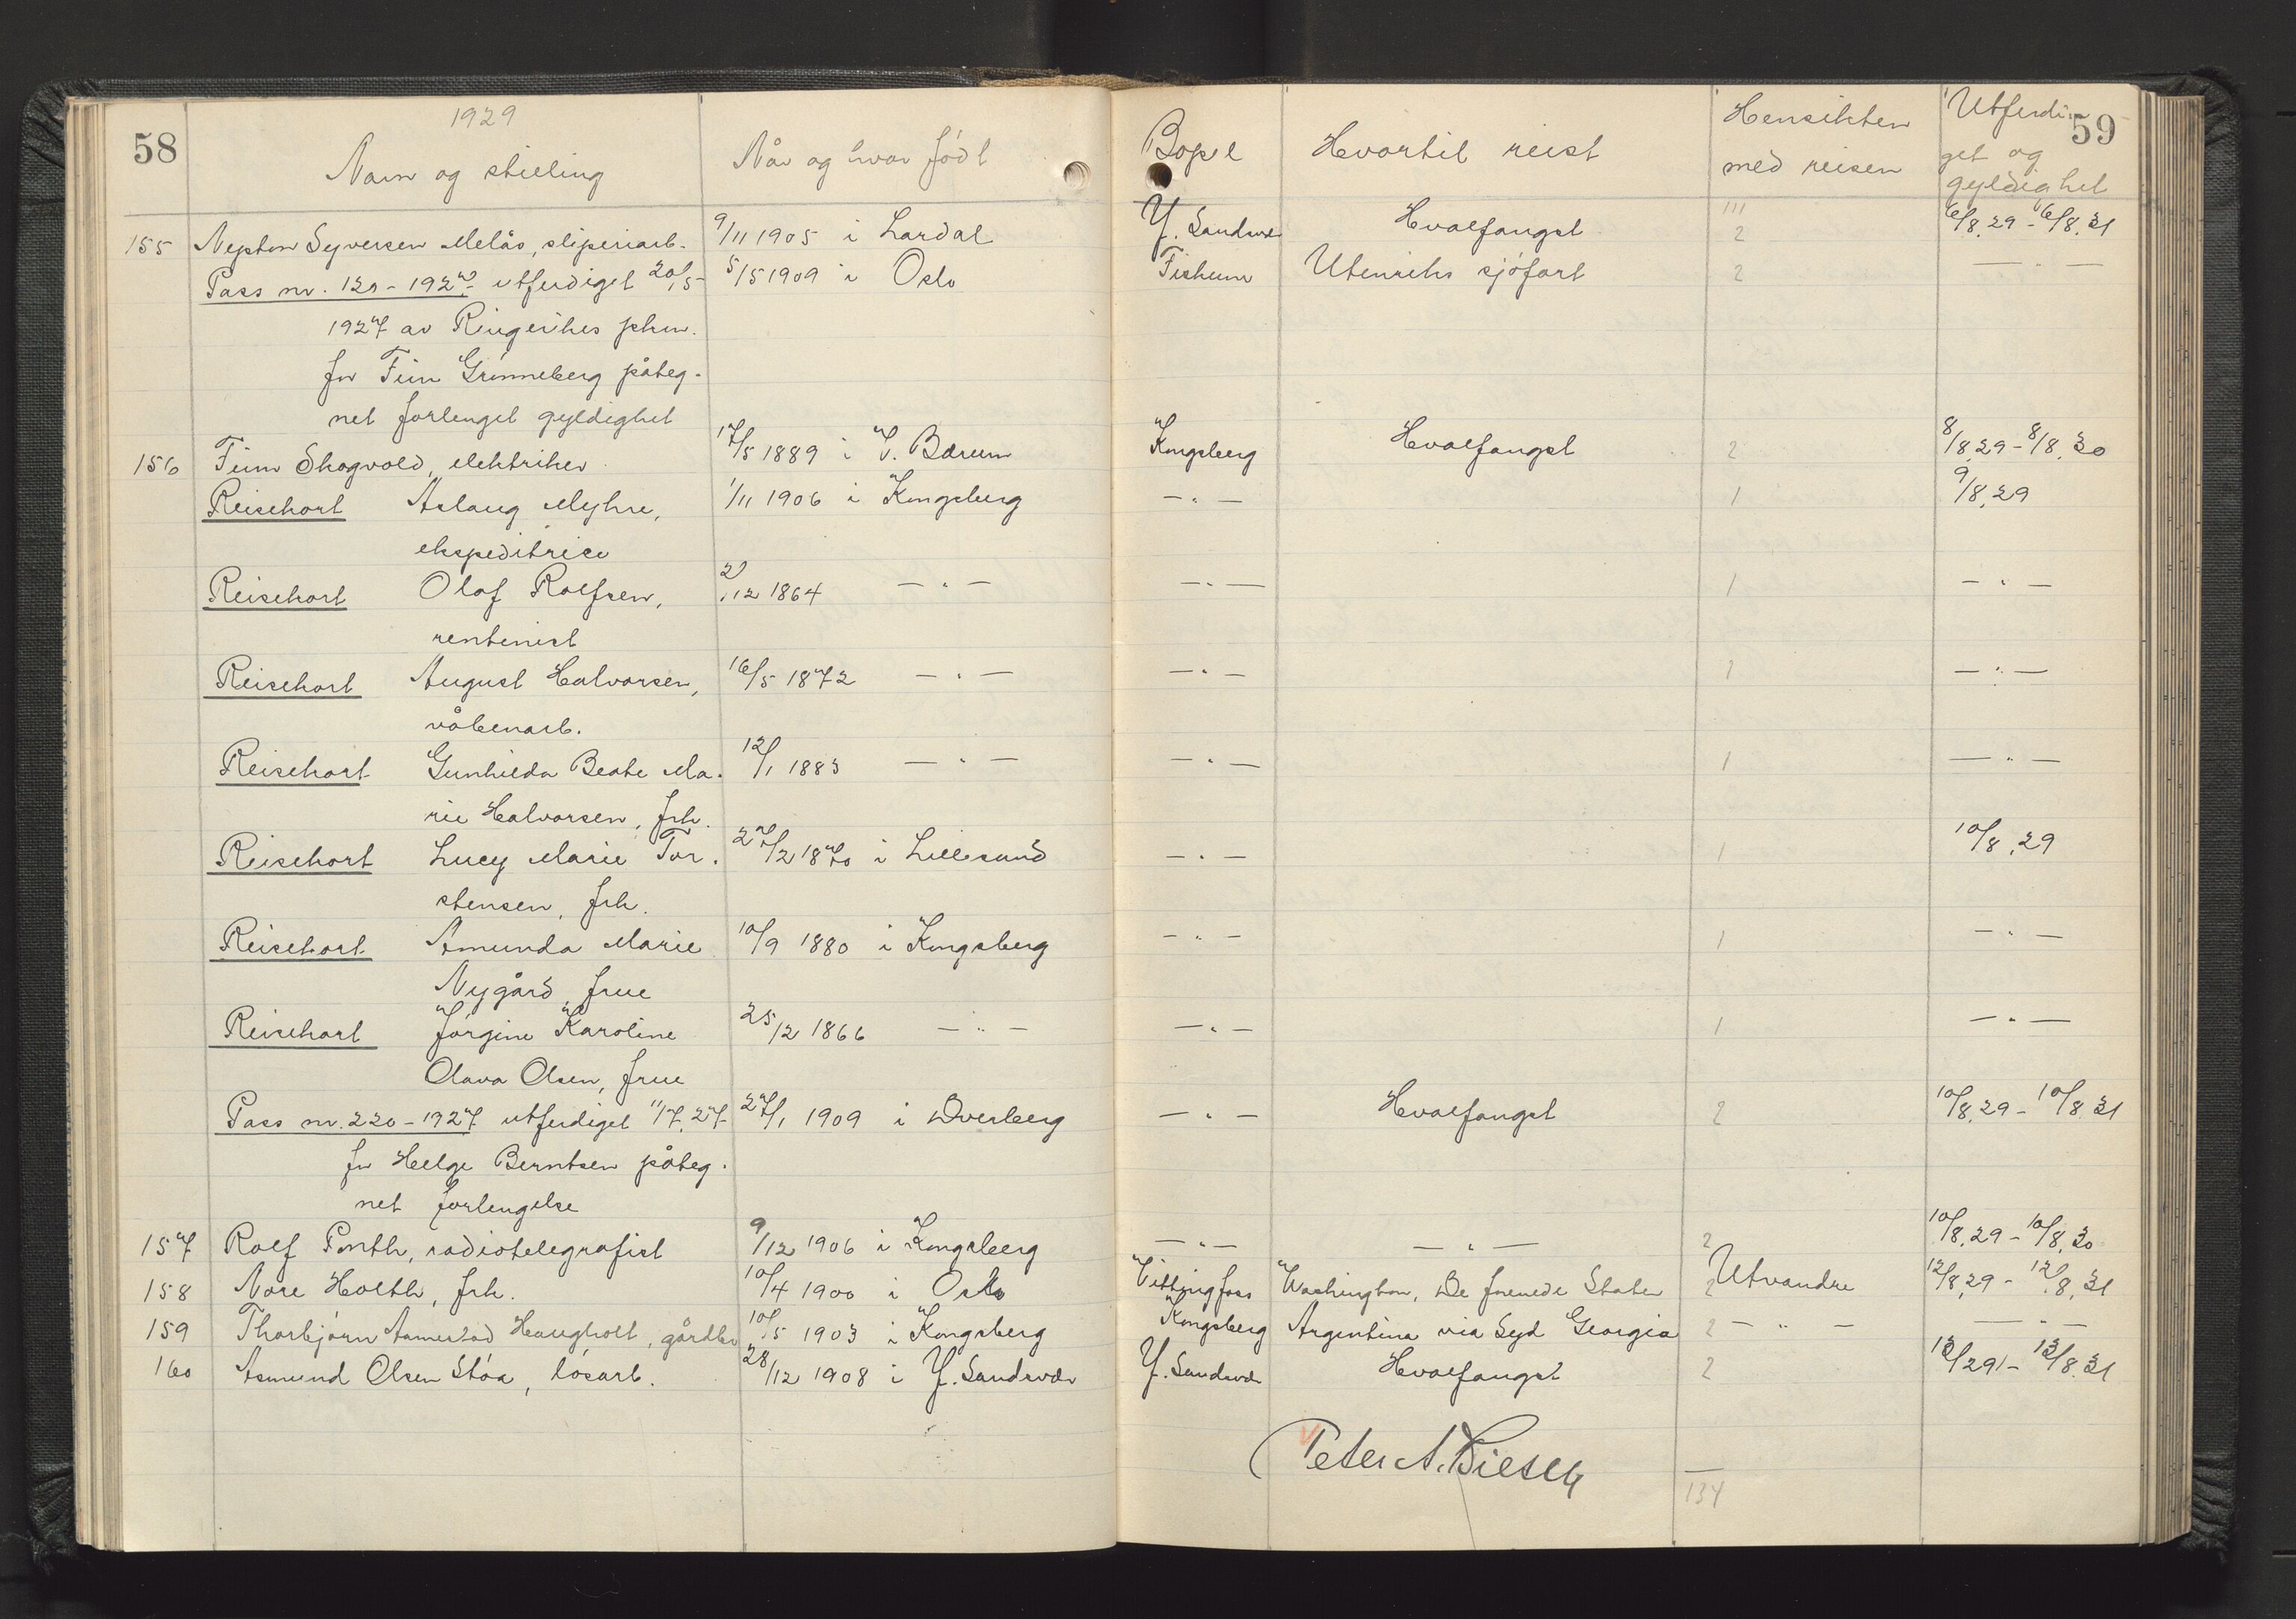 58
1929
Navn og stilling
Når og hvor født
Bopel
Hvortil reist
Hensikten
med reisen
Utferdi-
get og
gyldighet
59
155 Nepton Syversen Melås, sliperiarb. 9/11 1905 i Lardal Y. Sandsvær Hvalfangst 111 2 6/8.29 - 6/8.31
Pass nr. 120 - 1927 utferdiget 20/5- 5/5 1909 i Oslo Fiskum Utenriks sjøfart 2 — " —
1927 av Ringerikes pkm.
for Finn Grønneberg påteg-
net forlenget gyldighet
156 Finn Skogvold, elektriker 17/5 1889 i V. Bærum Kongsberg Hvalfangst 2 8/8.29 - 8/8.30
Reisekort Aslaug Myhre, 1/11 1906 i Kongsberg — " — 1 9/8.29
ekspeditrise
Reisekort Olaf Rolfsen, 2/12 1864 — " — — " — 1 — " —
rentenist
Reisekort August Halvorsen, 16/5 1872 — " — — " — 1 — " —
våbenarb.
Reisekort Gunhilda Beate Ma- 12/1 1883 — " — — " — 1 — " —
rie Halvorsen, frk.
Reisekort Lucy Marie Tor- 27/2 1870 i Lillesand — " — 1 10/8.29
stensen, frk.
Reisekort Amunda Marie 10/9 1880 i Kongsberg — " — 1 — " —
Nygård, frue
Reisekort Jørgine Karoline 25/12 1866 — " — — " — 1 — " —
Olava Olsen, frue
Pass nr. 220 - 1927 utferdiget 11/7.27- 27/1 1909 i Dverberg — " — Hvalfangst 2 10/8.29 - 10/8.31
for Helge Berntsen påteg-
net forlengelse
157 Rolf Ponth, radiotelegrafist 9/12 1906 i Kongsberg — " — — " — 2 10/8.29 - 10/8.30
158 Nore Holth, frk. 10/4 1900 i Oslo Vittingfoss Washington, De forenede Stater 2 Utvandre 12/8.29 - 12/8.31
159 Thorbjørn Aamestad Haugholt, gårdbr 10/5 1903 i Kongsberg Kongsberg Argentina via Syd Georgia 2 — " — — " —
160 Asmund Olsen Støa, løsarb. 28/12 1908 i Y. Sandsvær Y. Sandsvær Hvalfangst 2 13/29 - 13/8.31
Peter A.
134